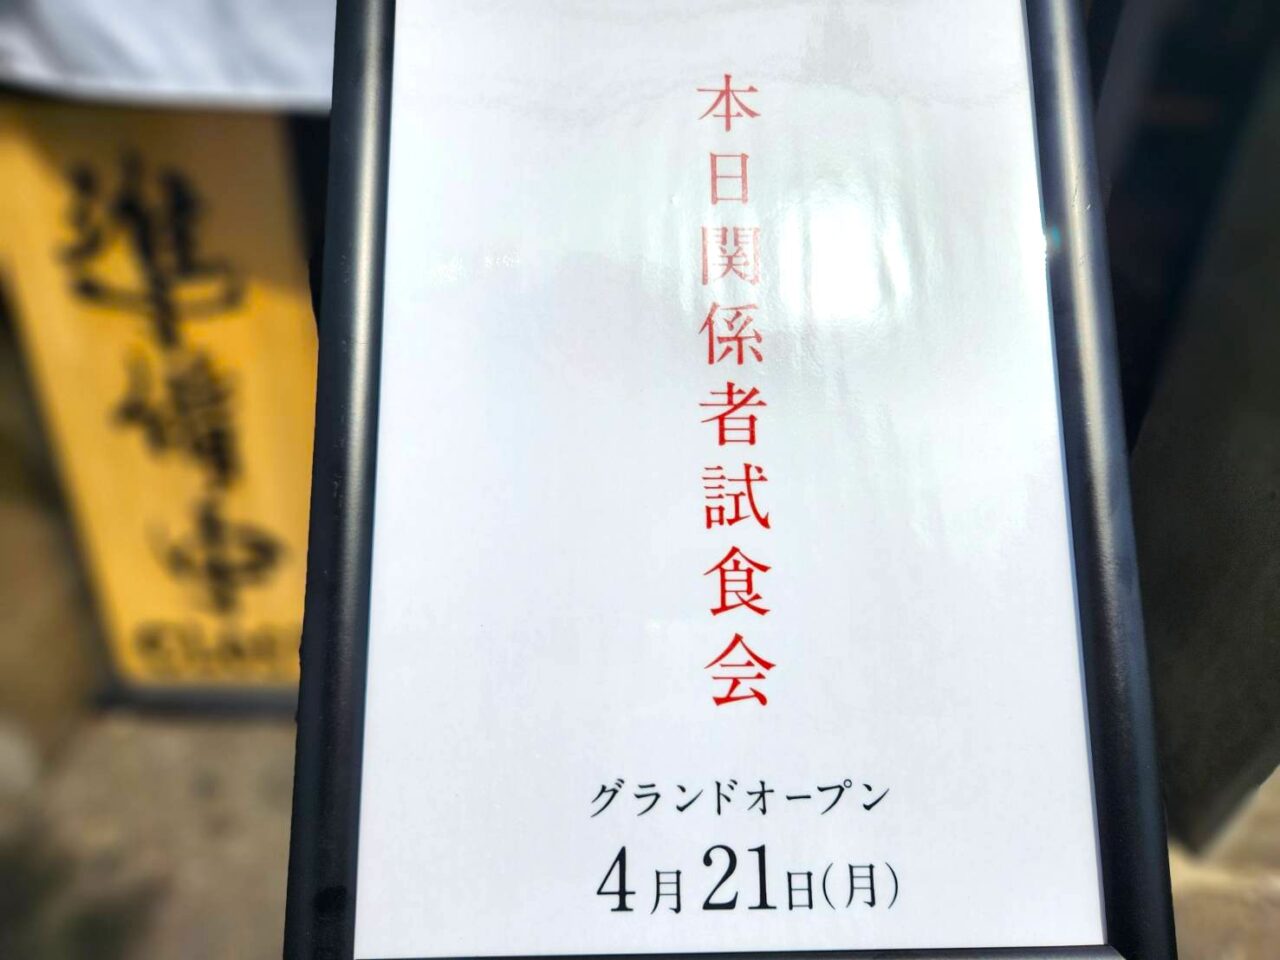 準備中
CLOSED
本日関係者試食会
グランドオープン
4月21日(月)